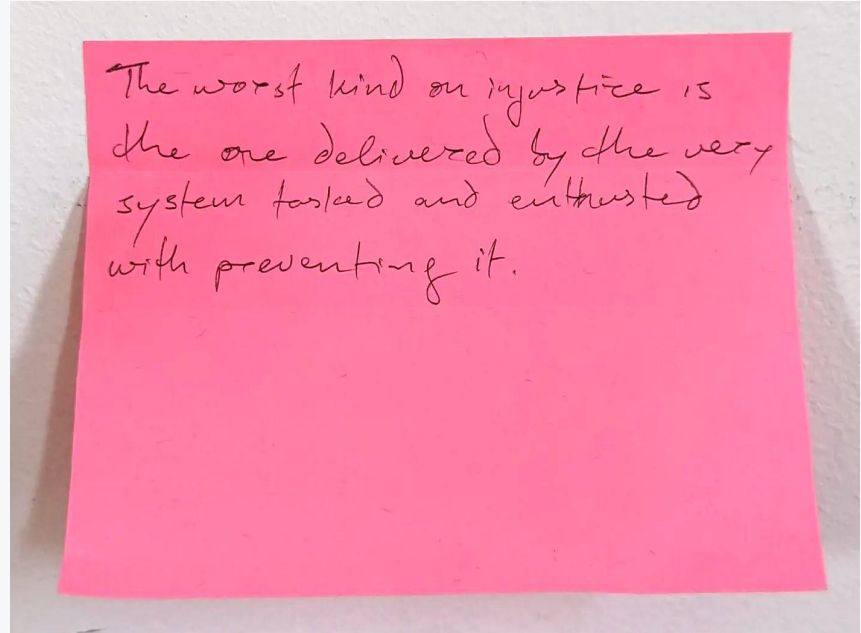 The worst kind on injustice is
the one delivered by the very
system tasked and enthrusted
with preventing it.